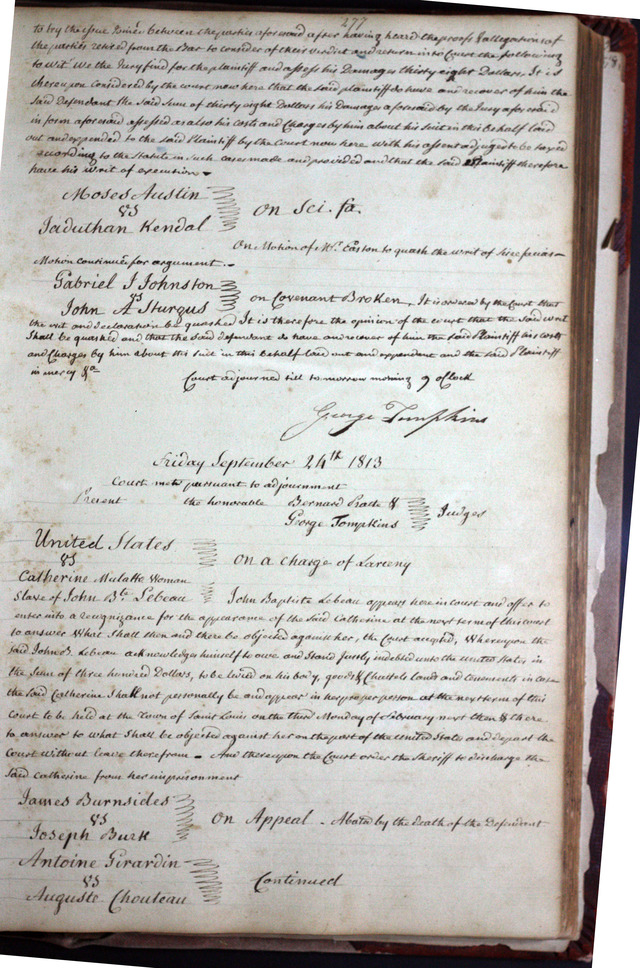 277
to try the issue Joined between the parties aforesaid after having heard the proofs & allegations of
the parties retired from the Bar to consider of their verdict and return into Court the following
to wit. We the Jury find for the plaintiff and assess his Damages thirty eight Dollars, It is
thereupon considered by the court now here that the said plaintiff do have and recover of him the
said Defendant the said sum of thirty eight Dollars his Damages aforesaid by the Jury aforesaid
in form aforesaid assessed as also his costs and Charges by him about his suit in this Behalf laid
out and expended to the said Plaintiff by the Court now here with his assent adjuged to be taxed
according to the statute in such cases made and provided and that the said Plaintiff therefore
have his writ of execution
Moses Austin
vs
Jaduthan Kendal
On Sci. fa.
On Motion of Mr. Easton to quash the writ of Scire facias
Motion continued for argument.
Gabriel J Johnston
vs
John A Sturgus
on Covenant Broken, It is ordered by the Court that
the writ and declaration be quashed It is therefore the opinion of the court that the said writ
shall be quashed and that the said defendant do have and recover of him the said Plaintiff his costs
and Charges by him about his suit in this Behalf laid out and expended and the said Plaintiff
in mercy &a
Court adjourned till to morrow morning 9 oClock
George Tompkins
Friday September 24th 1813
Court mets pursuant to adjournment
Present the honorable Bernard Pratte &
George Tompkins
Judges
United States
vs
Catherine Mulatto Woman
Slave of John Bte Lebeau
on a charge of Larceny
John Baptiste Lebeau appears here in court and offer to
enter into a recognizance for the appearance of the said Catherine at the next term of this court
to answer What shall then and there be objected against her, the Court accepted, Whereupon the
said John B. Lebeau acknowledges himself to owe and stand Justly indebted unto the united States in
the sum of three hundred Dollars, to be levied on his body, goods & Chattels lands and tenements in case
the said Catherine shall not personally be and appear in her proper person at the next term of this
Court to be held at the Town of Saint Louis on the third Monday of February next then & there
to answer to what shall be objected against her on the part of the united State and depart the
Court without leave therefrom - And thereupon the Court order the Sheriff to discharge the
said Catherine from her imprisonment
James Burnsides
vs
Joseph Burk
On Appeal - Abated by the death of the Defendant
Antoine Girardin
vs
Auguste Chouteau
Continued